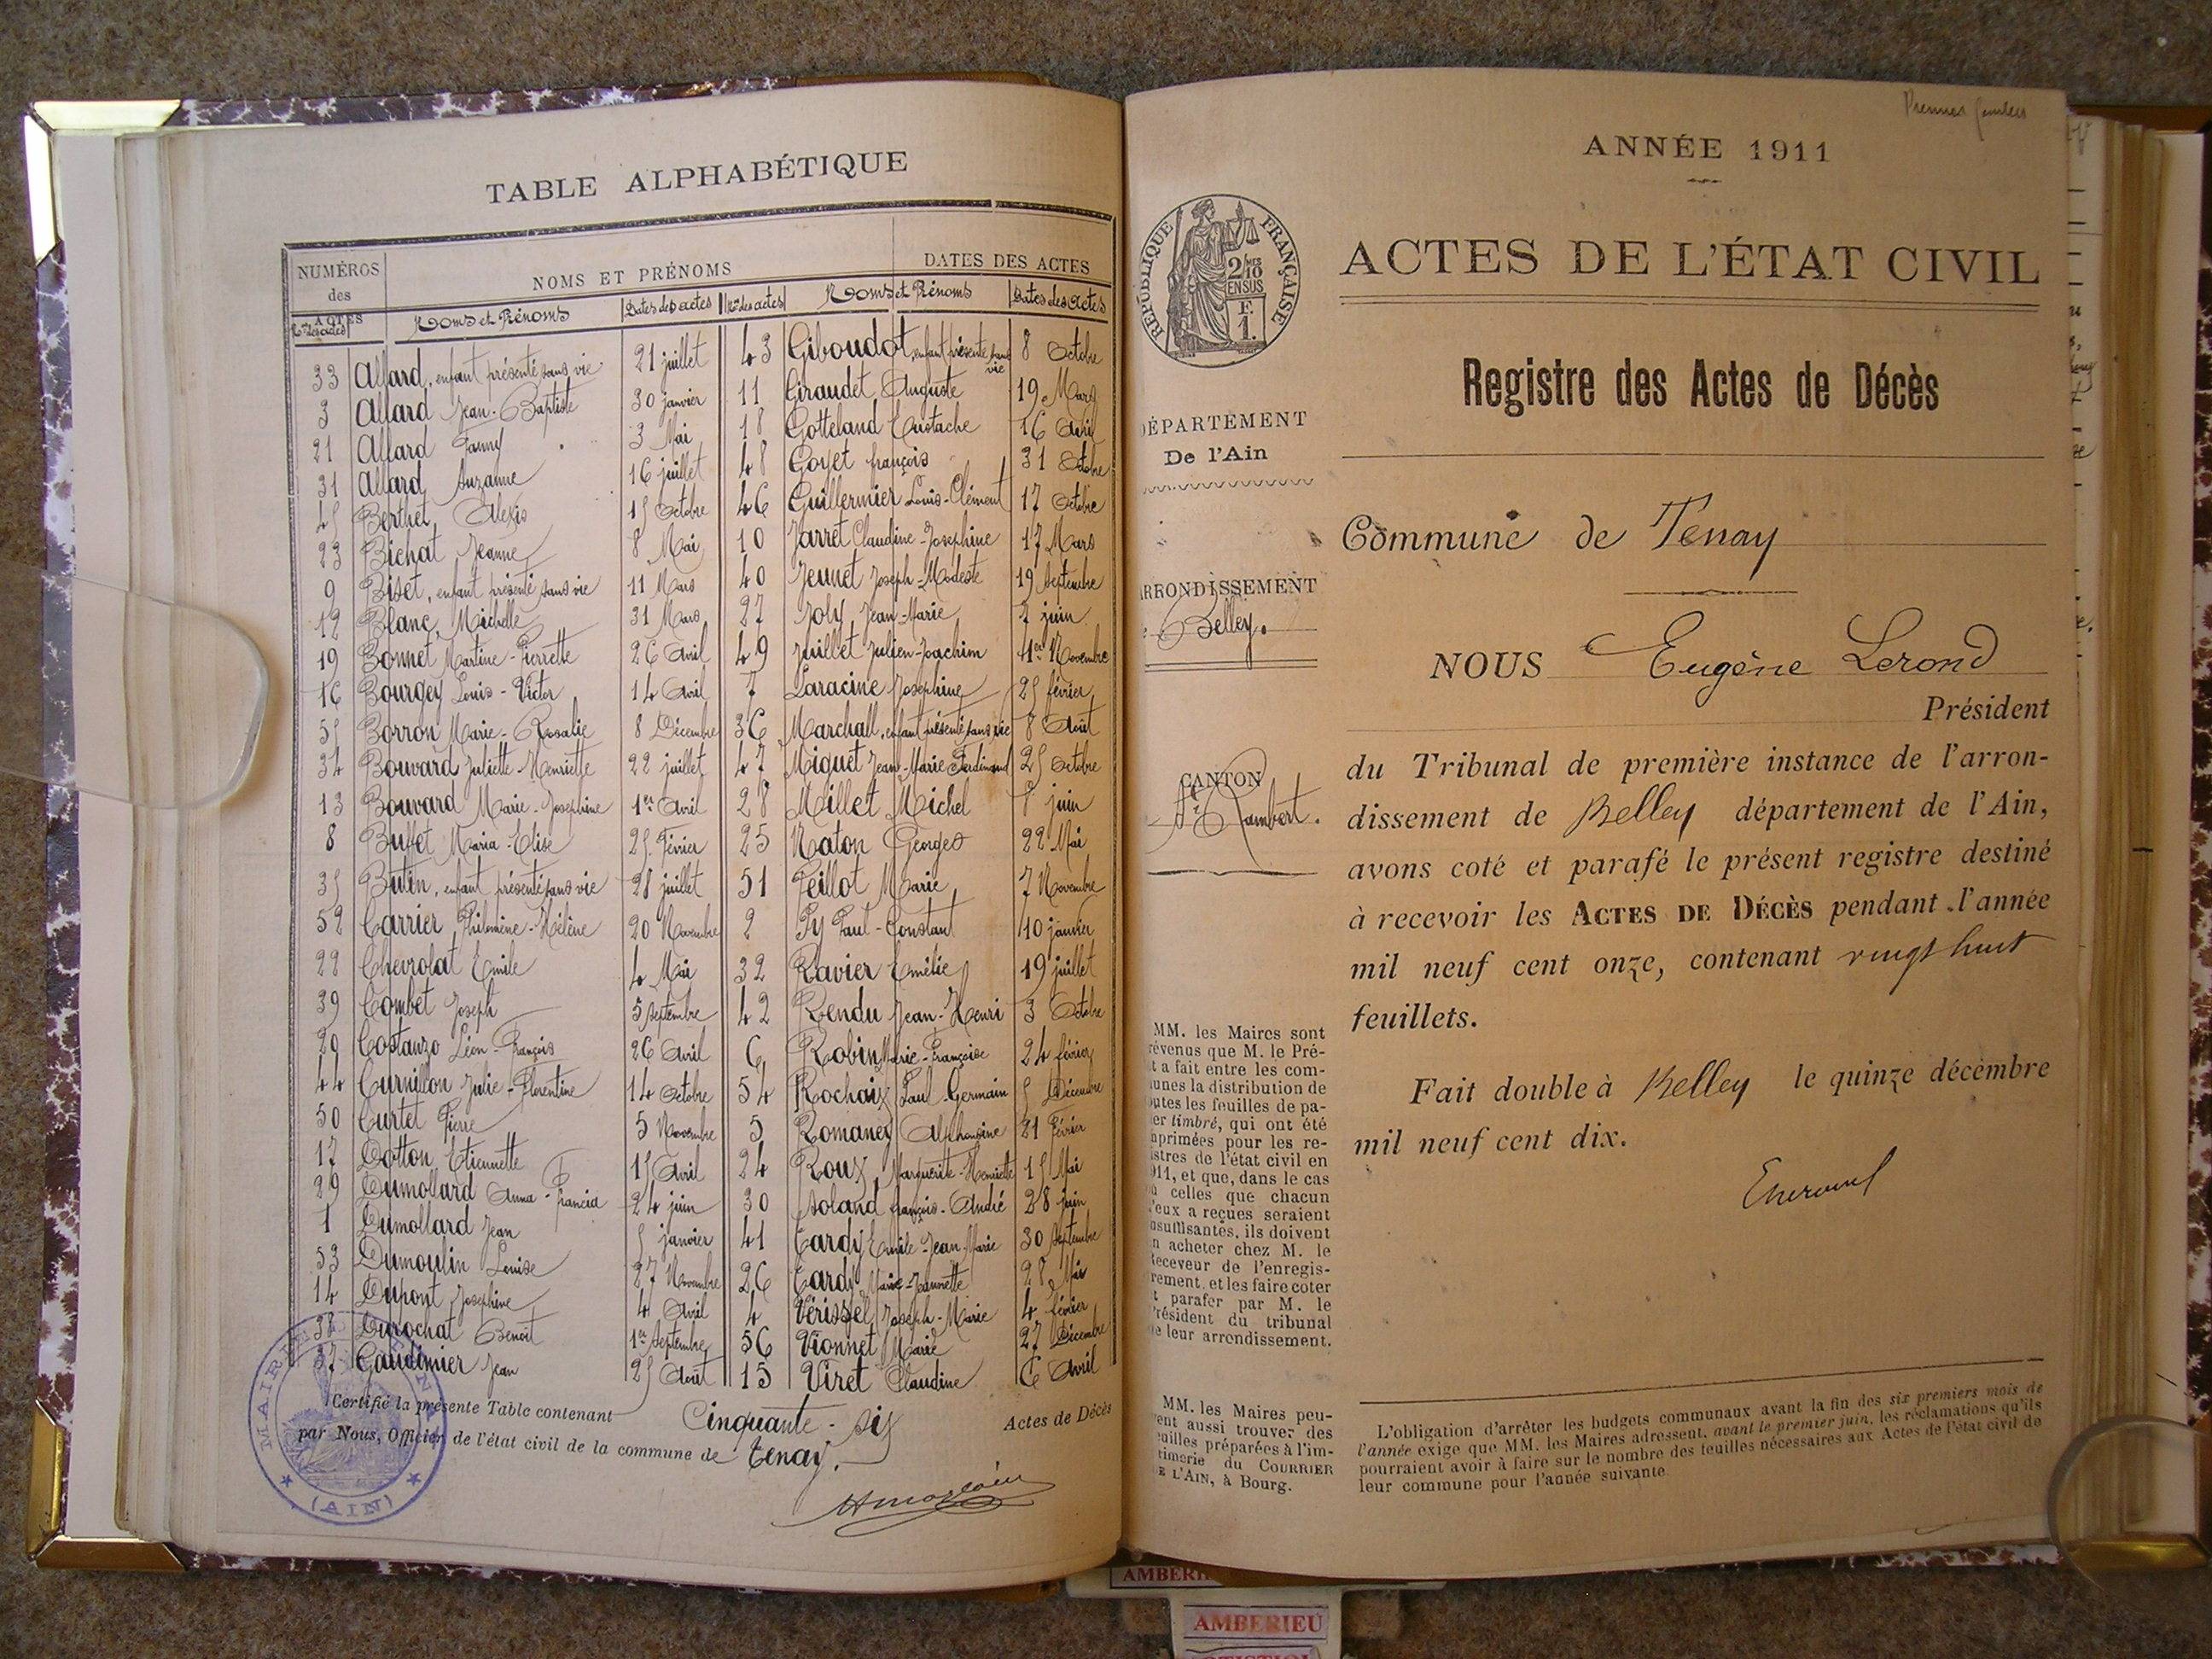 TABLE ALPHABÉTIQUE
NUMÉROS des ACTES
NOMS ET PRÉNOMS
DATES DES ACTES
Nos des actes Noms et Prénoms Dates des actes Nos des actes Noms et Prénoms Dates des actes
33 Allard, enfant présenté sans vie 21 juillet 43 Giboudot, enfant présenté sans vie 8 Octobre
3 Allard Jean-Baptiste 30 janvier 11 Giraudet Auguste 19 Mars
21 Allard Fanny 3 Mai 18 Gotteland Eustache 16 Avril
31 Allard Suzanne 16 juillet 48 Goyet françois 31 Octobre
45 Berthet Alexis 15 Octobre 46 Guillermier Louis-Clément 17 Octobre
23 Bichat Jeanne 8 Mai 10 Jarret Claudine-Josephine 17 Mars
9 Biset, enfant présenté sans vie 11 Mars 40 Jeunet Joseph-Modeste 19 Septembre
12 Blanc, Michelle 31 Mars 27 Joly Jean-Marie 7 juin
19 Bonnet Martine-Pierrette 26 Avril 49 Juillet Julien-Joachim 1er Novembre
16 Bourgey Louis-Victor 14 Avril 7 Laracine Josephine 25 février
55 Borron Marie-Rosalie 8 Décembre 36 Marchall, enfant présenté sans vie 8 Août
34 Bouvard Juliette-Henriette 22 juillet 47 Miguet Jean-Marie Ferdinand 25 Octobre
13 Bouvard Marie-Josephine 1er Avril 28 Millet Michel 8 juin
8 Buffet Maria-Elise 25 Février 25 Naton Georges 22 Mai
35 Butin, enfant présenté sans vie 28 juillet 51 Peillot Marie 7 Novembre
52 Carrier Philomène-Hélène 20 Novembre 2 Py Paul-Constant 10 janvier
22 Chevrolat Emile 4 Mai 32 Ravier Emélie 19 juillet
39 Combet Joseph 5 Septembre 42 Rendu Jean-Henri 3 Octobre
20 Costanzo Léon-François 26 Avril 6 Robin Marie-Françoise 24 février
44 Curnillon Julie-Florentine 14 Octobre 54 Rochaix Paul-Germain 5 Décembre
50 Curtet Pierre 5 Novembre 5 Romaney Alphonsine 21 Février
17 Dotton Etiennette 15 Avril 24 Roux, Marguerite-Henriette 15 Mai
29 Dumollard Anna-Francia 24 juin 30 Soland françois-André 28 juin
1 Dumollard Jean 5 janvier 41 Tardy Emile-Jean-Marie 30 Septembre
53 Dumoulin Louise 27 Novembre 26 Tardy Marie-Jeannette 28 Mai
14 Dupont Josephine 4 Avril 4 Vérissel Joseph-Marie 4 février
38 Durochat Benoit 1er Septembre 56 Vionnet Marie 27 Décembre
37 Gaudinier Jean 25 Août 15 Viret Claudine 6 Avril
Certifié la présente Table contenant Cinquante-six Actes de Décès
par Nous, Officier de l'état civil de la commune de Tenay.
MAIRIE
(AIN)
ANNÉE 1911
RÉPUBLIQUE FRANÇAISE
2/10MES
EN SUS
F.
1.
ACTES DE L'ÉTAT CIVIL
Registre des Actes de Décès
DÉPARTEMENT
De l'Ain
Commune de Tenay
ARRONDISSEMENT
Belley.
NOUS Eugène Lerond
Président
CANTON
St Rambert.
du Tribunal de première instance de l'arron-
dissement de Belley département de l'Ain,
avons coté et parafé le présent registre destiné
à recevoir les ACTES DE DÉCÈS pendant l'année
mil neuf cent onze, contenant vingt huit
feuillets.
Fait double à Belley le quinze décembre
mil neuf cent dix.
MM. les Maires sont
révenus que M. le Pré-
t a fait entre les com-
unes la distribution de
outes les feuilles de pa-
ier timbré, qui ont été
mprimées pour les re-
istres de l'état civil en
911, et que, dans le cas
celles que chacun
'eux a reçues seraient
nsuffisantes, ils doivent
n acheter chez M. le
Receveur de l'enregis-
rement, et les faire coter
t parafer par M. le
Président du tribunal
e leur arrondissement.
MM. les Maires peu-
vent aussi trouver des
euilles préparées à l'im-
rimerie du COURRIER
DE L'AIN, à Bourg.
L'obligation d'arrêter les budgets communaux avant la fin des six premiers mois de
l'année exige que MM. les Maires adressent, avant le premier juin, les réclamations qu'ils
pourraient avoir à faire sur le nombre des feuilles nécessaires aux Actes de l'état civil de
leur commune pour l'année suivante.
AMBERIEU